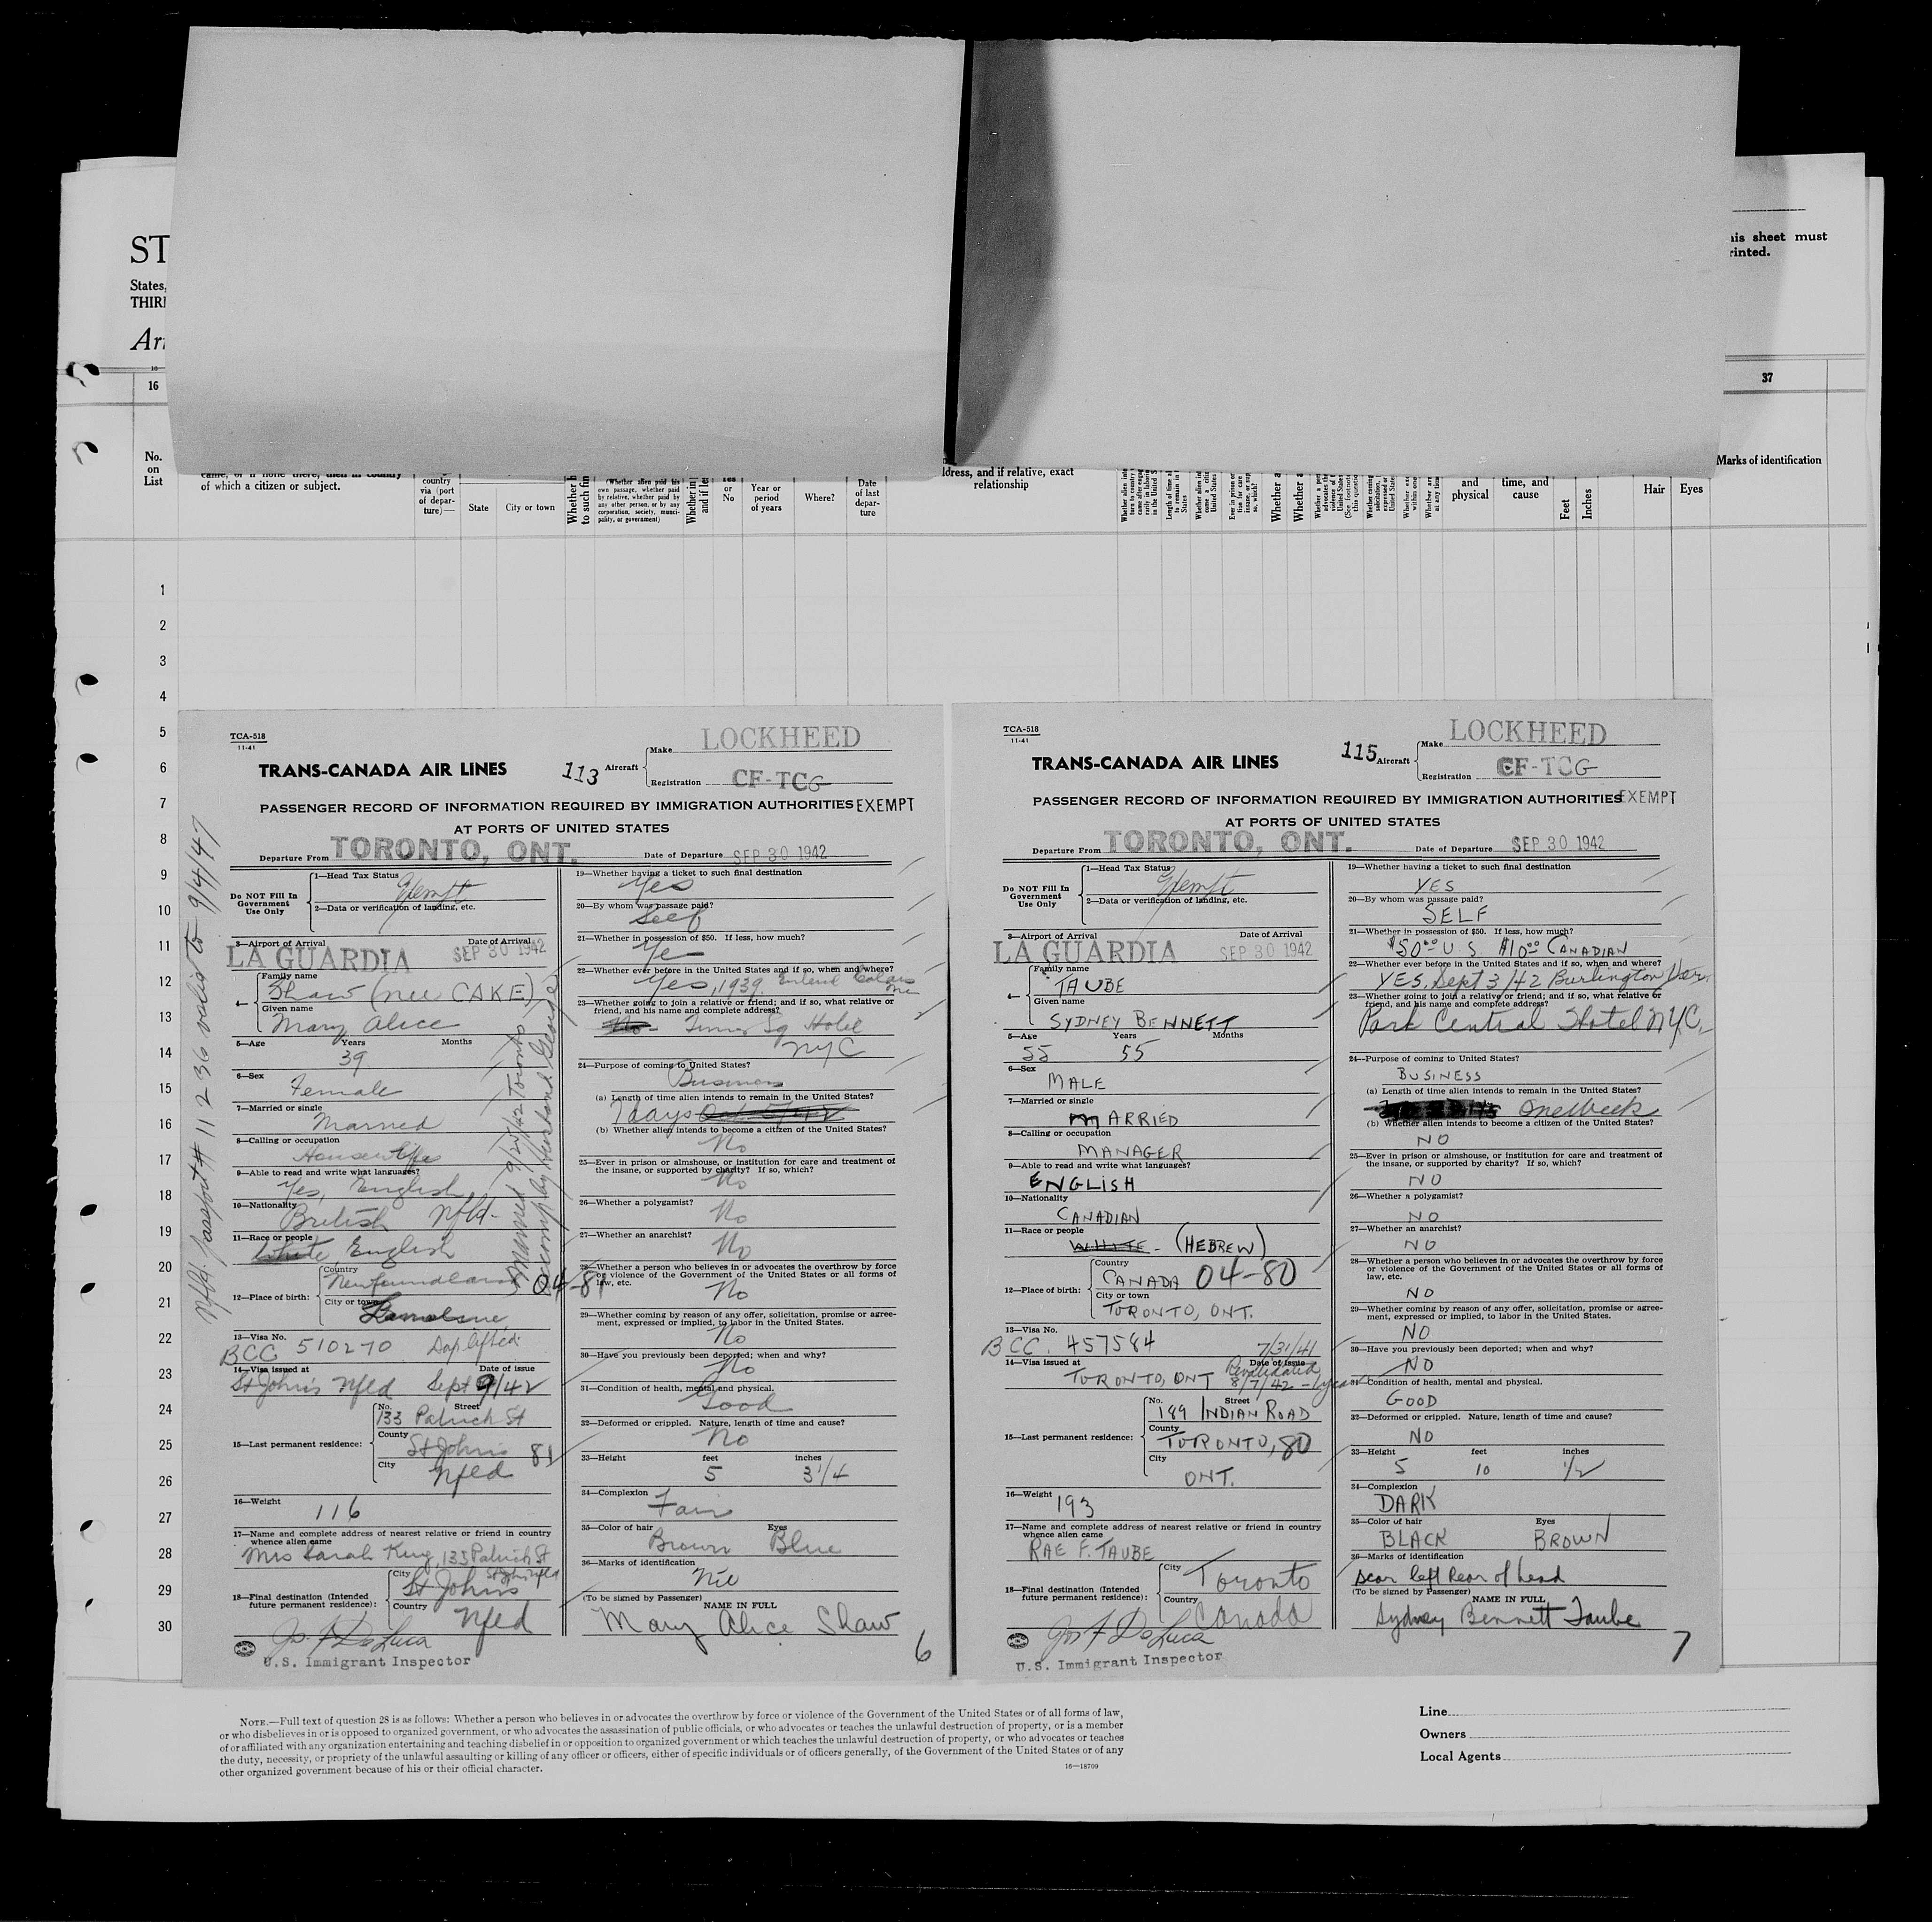 ST
States,
THIR
Ar
his sheet must
rinted.
16
37
No.
on
List
of which a citizen or subject.
country
via (port
of depar-
ture)—
State
City or town
(Whether alien paid his
own passage, whether paid
by relative, whether paid by
any other person, or by any
corporation, society, munici-
pality, or government)
Yes
or
No
Year or
period
of years
Where?
Date
of last
depar-
ture
ldress, and if relative, exact
relationship
and
physical
time, and
cause
Feet
Inches
Hair
Eyes
Marks of identification
1
2
3
4
5
6
7
8
9
10
11
12
13
14
15
16
17
18
19
20
21
22
23
24
25
26
27
28
29
30
TCA-518
11-41
TRANS-CANADA AIR LINES
113
Aircraft
Make LOCKHEED
Registration CF-TCG
PASSENGER RECORD OF INFORMATION REQUIRED BY IMMIGRATION AUTHORITIES EXEMPT
AT PORTS OF UNITED STATES
Departure From TORONTO, ONT. Date of Departure SEP 30 1942
Do NOT Fill In
Government
Use Only
1—Head Tax Status
Exempt
2—Data or verification of landing, etc.
3—Airport of Arrival Date of Arrival
LA GUARDIA SEP 30 1942
4—
Family name
Shaw (nee CAKE)
Given name
Mary Alice
5—Age Years Months
39
6—Sex
Female
7—Married or single
Married
8—Calling or occupation
Housewife
9—Able to read and write what languages?
Yes, English
10—Nationality
British Nfld.
11—Race or people
White English
12—Place of birth:
Country
Newfoundland 04-81
City or town
Lamaline
13—Visa No.
BCC 510270 Dop lifted
14—Visa issued at Date of issue
St John's Nfld Sept 9/42
15—Last permanent residence:
No. Street
133 Patrick St
County
St John's 81
City
Nfld
16—Weight
116
17—Name and complete address of nearest relative or friend in country
whence alien came
Mrs Sarah King, 133 Patrick St
St John's Nfld
18—Final destination (Intended
future permanent residence):
City
St John's
Country
Nfld
Jos. F De Luca
U.S. Immigrant Inspector
Nfld. passport # 11236 valid to 9/4/47
Married 9/20/42 Toronto
Accomp. by husband George
19—Whether having a ticket to such final destination
Yes
20—By whom was passage paid?
Self
21—Whether in possession of $50. If less, how much?
Ye
22—Whether ever before in the United States and if so, when and where?
Yes, 1939. Entered Calais
Me
23—Whether going to join a relative or friend; and if so, what relative or
friend, and his name and complete address?
No - Times Sq Hotel
NYC
24—Purpose of coming to United States?
Business
(a) Length of time alien intends to remain in the United States?
7 days Oct 5/42
(b) Whether alien intends to become a citizen of the United States?
No
25—Ever in prison or almshouse, or institution for care and treatment of
the insane, or supported by charity? If so, which?
No
26—Whether a polygamist?
No
27—Whether an anarchist?
No
28—Whether a person who believes in or advocates the overthrow by force
or violence of the Government of the United States or all forms of
law, etc.
No
29—Whether coming by reason of any offer, solicitation, promise or agree-
ment, expressed or implied, to labor in the United States.
No
30—Have you previously been deported; when and why?
No
31—Condition of health, mental and physical.
Good
32—Deformed or crippled. Nature, length of time and cause?
No
33—Height feet inches
5 3 1/4
34—Complexion
Fair
35—Color of hair Eyes
Brown Blue
36—Marks of identification
Nil
(To be signed by Passenger)
NAME IN FULL
Mary Alice Shaw
6
TCA-518
11-41
TRANS-CANADA AIR LINES
115
Aircraft
Make LOCKHEED
Registration CF-TCG
PASSENGER RECORD OF INFORMATION REQUIRED BY IMMIGRATION AUTHORITIES EXEMPT
AT PORTS OF UNITED STATES
Departure From TORONTO, ONT. Date of Departure SEP 30 1942
Do NOT Fill In
Government
Use Only
1—Head Tax Status
Exempt
2—Data or verification of landing, etc.
3—Airport of Arrival Date of Arrival
LA GUARDIA SEP 30 1942
4—
Family name
TAUBE
Given name
SYDNEY BENNETT
5—Age Years Months
55 55
6—Sex
MALE
7—Married or single
MARRIED
8—Calling or occupation
MANAGER
9—Able to read and write what languages?
ENGLISH
10—Nationality
CANADIAN
11—Race or people
WHITE - (HEBREW)
12—Place of birth:
Country
CANADA 04-80
City or town
TORONTO, ONT.
13—Visa No.
BCC. 457584 7/31/41
14—Visa issued at Date of issue
TORONTO, ONT Revalidated
8/7/42 - 1 year
15—Last permanent residence:
No. Street
189 INDIAN ROAD
County
TORONTO, 80
City
ONT.
16—Weight
193
17—Name and complete address of nearest relative or friend in country
whence alien came
RAE F. TAUBE
18—Final destination (Intended
future permanent residence):
City
Toronto
Country
Canada
Jos F De Luca
U.S. Immigrant Inspector
19—Whether having a ticket to such final destination
YES
20—By whom was passage paid?
SELF
21—Whether in possession of $50. If less, how much?
$50.00 U.S. $10.00 CANADIAN
22—Whether ever before in the United States and if so, when and where?
YES, Sept 3/42 Burlington Ver.
23—Whether going to join a relative or friend; and if so, what relative or
friend, and his name and complete address?
Park Central Hotel NYC.
24—Purpose of coming to United States?
BUSINESS
(a) Length of time alien intends to remain in the United States?
One Week
(b) Whether alien intends to become a citizen of the United States?
NO
25—Ever in prison or almshouse, or institution for care and treatment of
the insane, or supported by charity? If so, which?
NO
26—Whether a polygamist?
NO
27—Whether an anarchist?
NO
28—Whether a person who believes in or advocates the overthrow by force
or violence of the Government of the United States or all forms of
law, etc.
NO
29—Whether coming by reason of any offer, solicitation, promise or agree-
ment, expressed or implied, to labor in the United States.
NO
30—Have you previously been deported; when and why?
NO
31—Condition of health, mental and physical.
GOOD
32—Deformed or crippled. Nature, length of time and cause?
NO
33—Height feet inches
5 10 1/2
34—Complexion
DARK
35—Color of hair Eyes
BLACK BROWN
36—Marks of identification
scar left rear of head
(To be signed by Passenger)
NAME IN FULL
Sydney Bennett Taube
7
NOTE.—Full text of question 28 is as follows: Whether a person who believes in or advocates the overthrow by force or violence of the Government of the United States or of all forms of law,
or who disbelieves in or is opposed to organized government, or who advocates the assassination of public officials, or who advocates or teaches the unlawful destruction of property, or is a member
of or affiliated with any organization entertaining and teaching disbelief in or opposition to organized government or which teaches the unlawful destruction of property, or who advocates or teaches
the duty, necessity, or propriety of the unlawful assaulting or killing of any officer or officers, either of specific individuals or of officers generally, of the Government of the United States or of any
other organized government because of his or their official character.
16—18709
Line
Owners
Local Agents